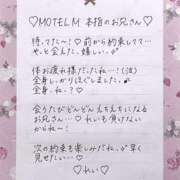 ♡MOTEL M 本指のお兄さん♡
待ってた〜!♡前から約束してて…
やっと会えた、嬉しい。♡
体お疲れ様だったね…!(泣)
全身しっかりほぐしました。
全身、ね。?♡
会うたびどんどんえちえちになる
お兄さん♡れいも負けない
から〜!
次の約束も楽しみだね。早く
見せたい…♡
♡れい♡